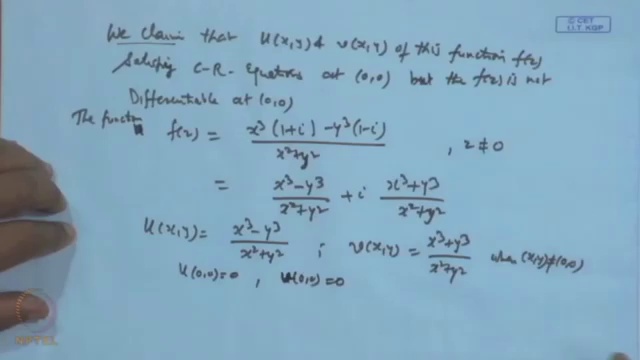 © CET
I.I.T. KGP
We claim that u(x,y) & v(x,y) of this function f(z)
Satisfying C-R-Equations at (0,0) but the f(z) is not
Differentiable at (0,0)
The function f(z) = x³(1+i) - y³(1-i) / x²+y² , z ≠ 0
= x³-y³ / x²+y² + i x³+y³ / x²+y²
u(x,y) = x³-y³ / x²+y² ; v(x,y) = x³+y³ / x²+y² when (x,y)≠(0,0)
u(0,0)=0 , v(0,0)=0
NPTEL